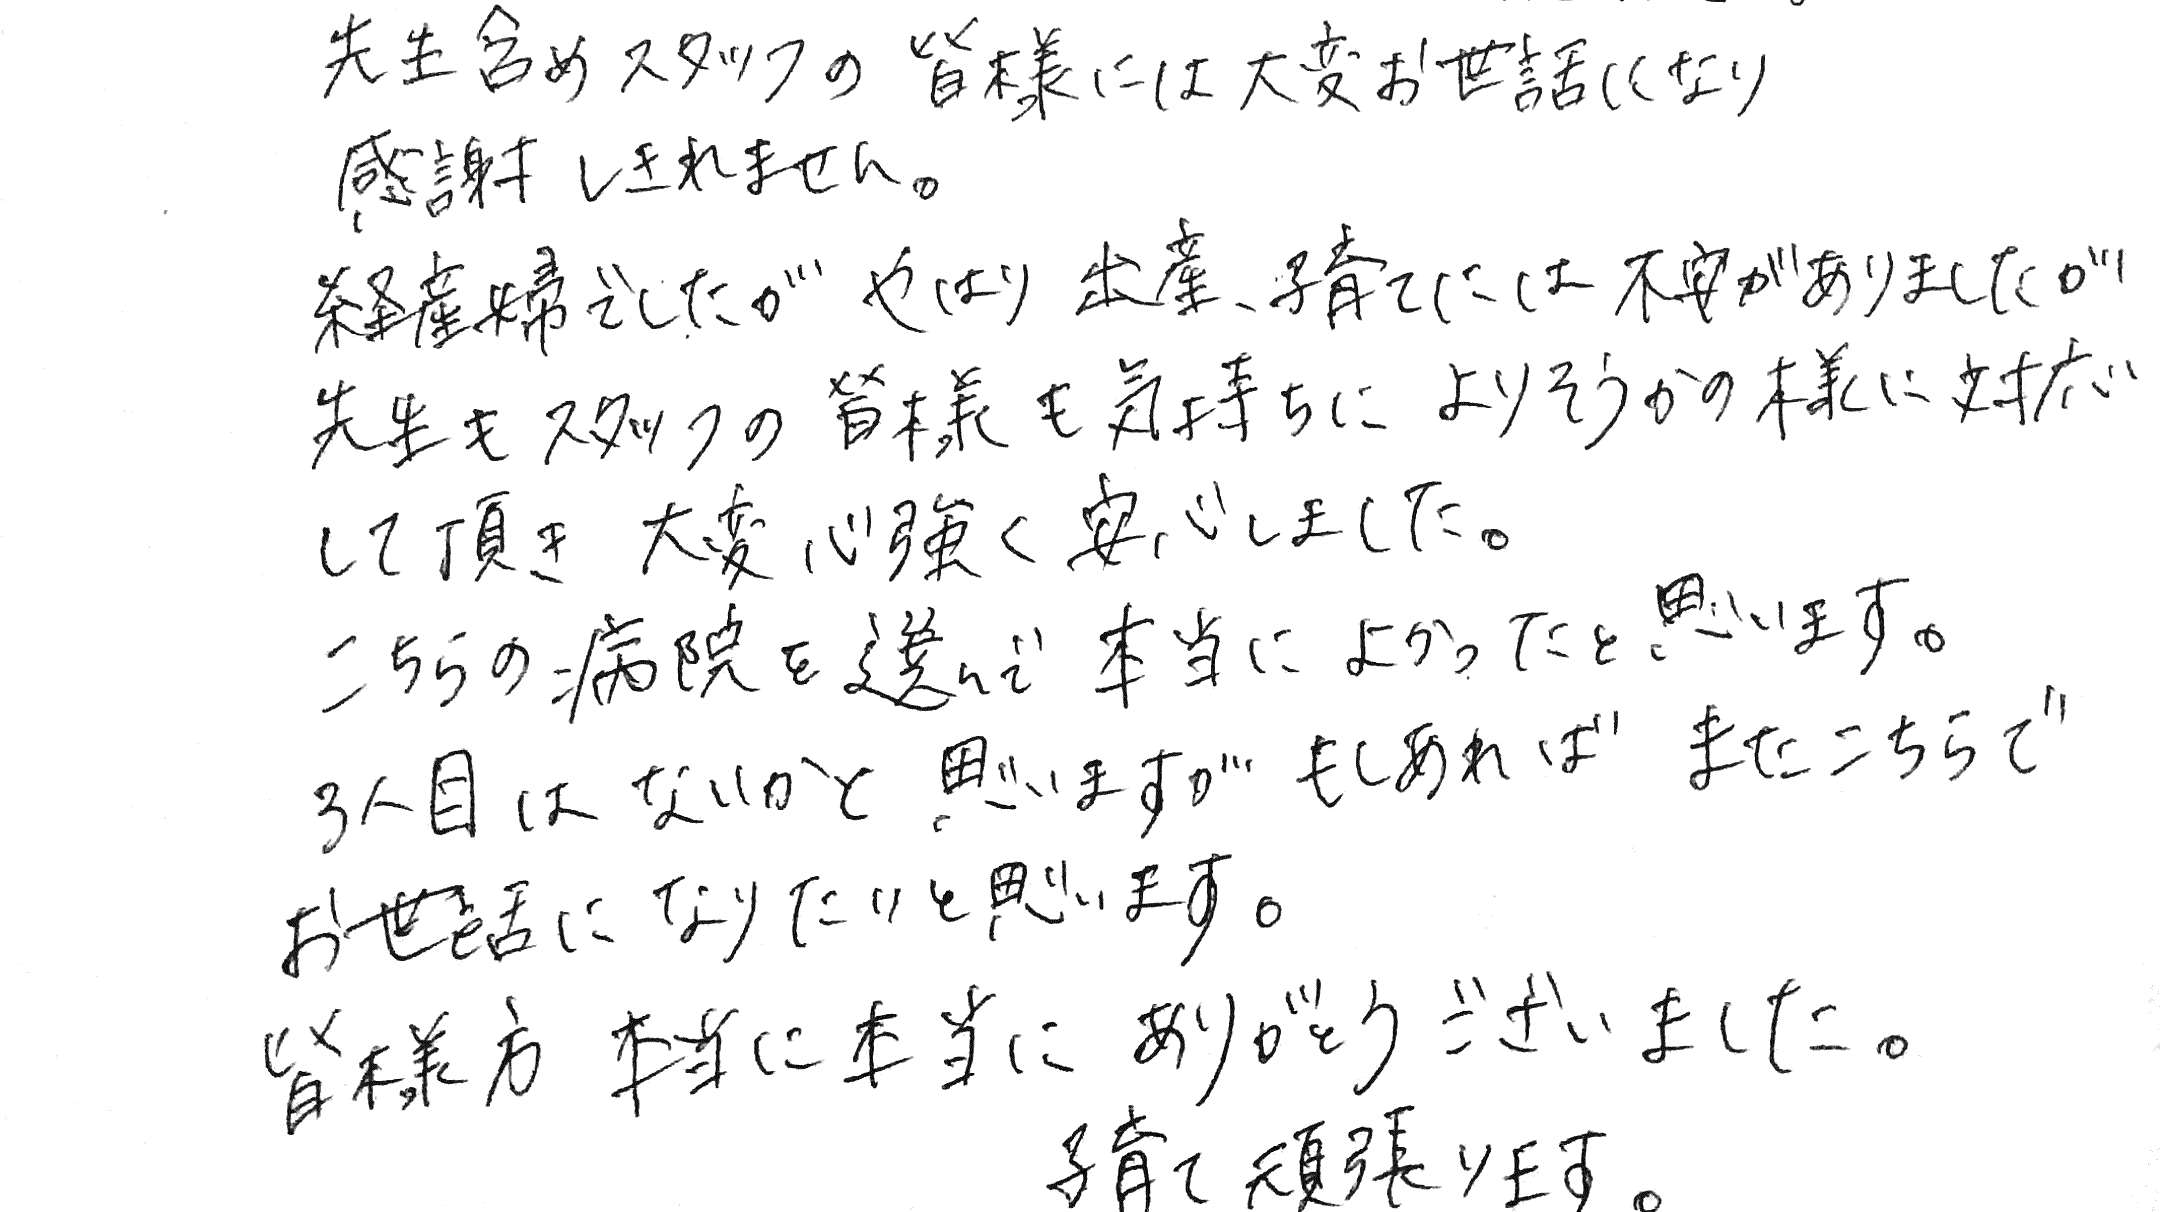 先生含めスタッフの皆様には大変お世話になり
感謝しきれません。
経産婦でしたがやはり出産、子育てには不安がありましたが
先生もスタッフの皆様も気持ちによりそうかの様に対応
して頂き大変心強く安心しました。
こちらの病院を選んで本当によかったと思います。
3人目はないかと思いますがもしあればまたこちらで
お世話になりたいと思います。
皆様方本当に本当にありがとうございました。
子育て頑張ります。